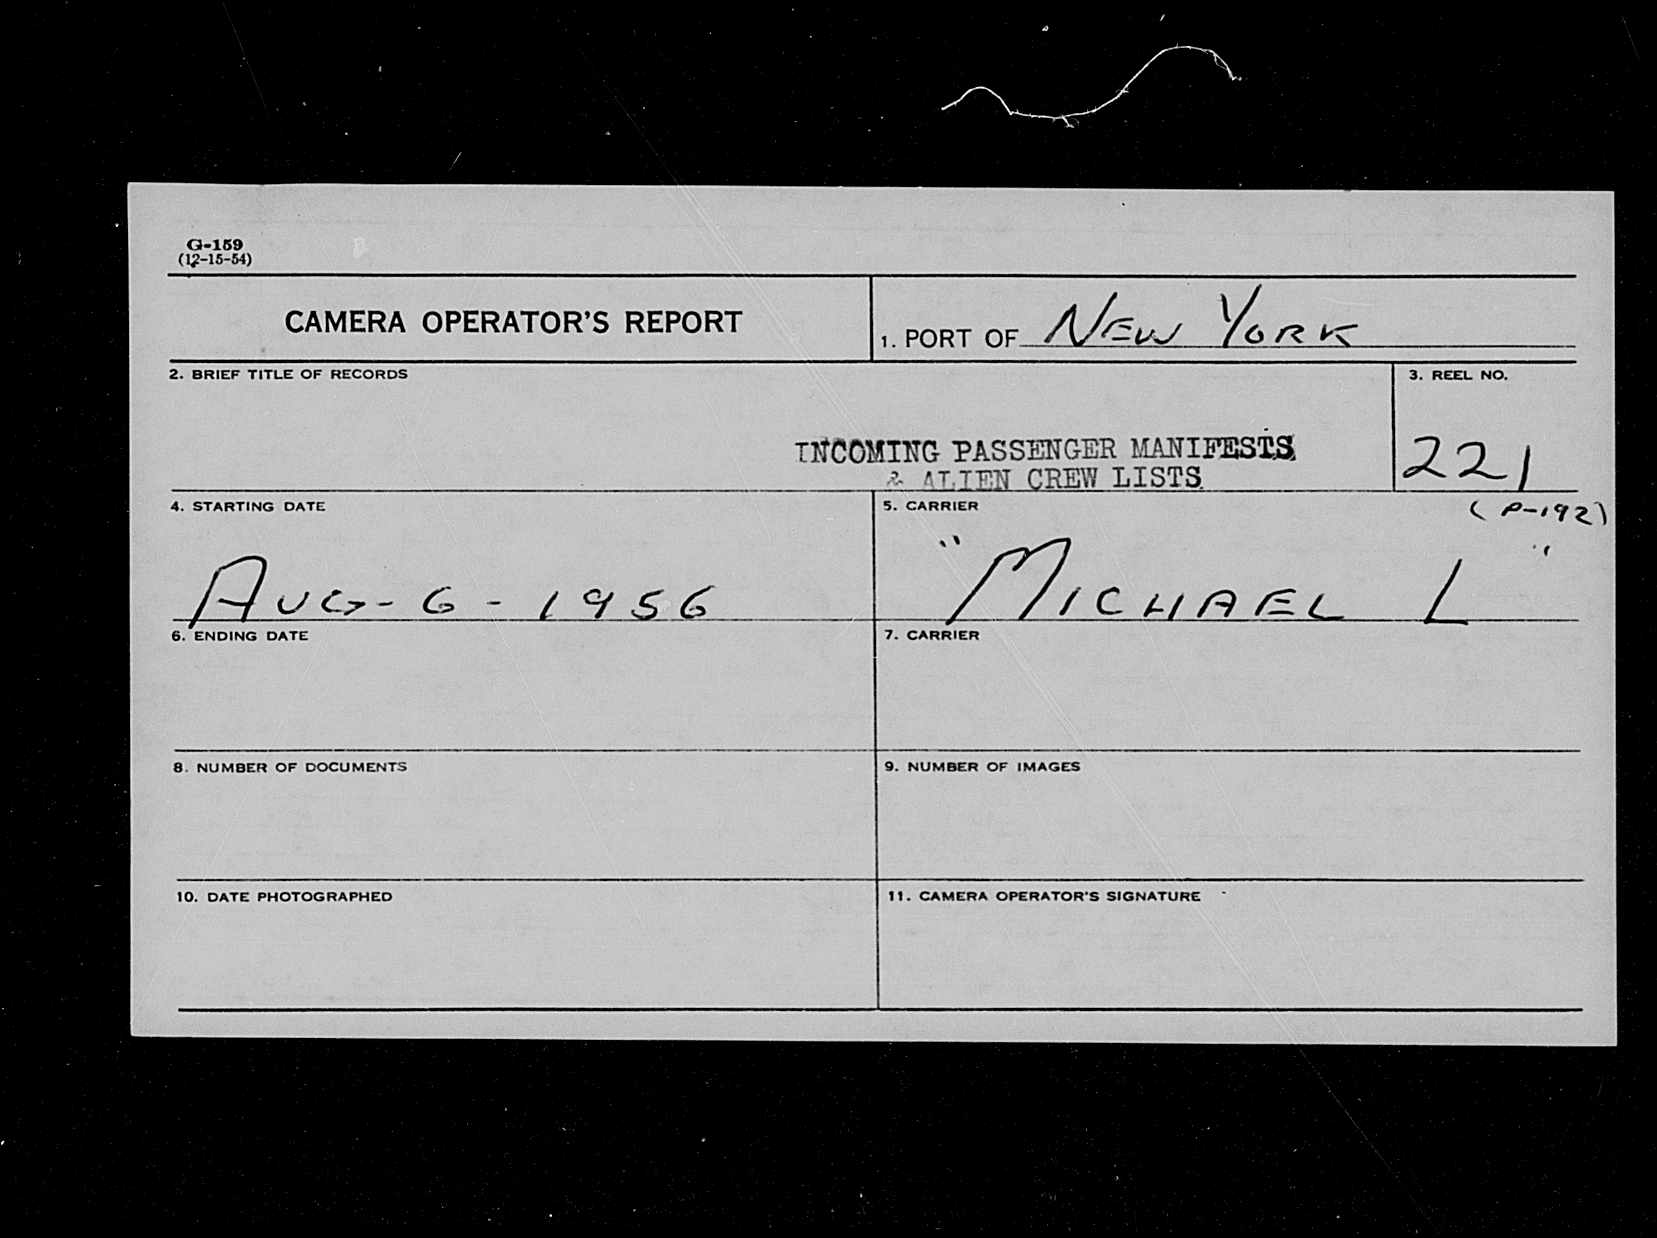 G-159
(12-15-54)
CAMERA OPERATOR'S REPORT
1. PORT OF NEW YORK
2. BRIEF TITLE OF RECORDS
INCOMING PASSENGER MANIFESTS
& ALIEN CREW LISTS
3. REEL NO.
221
(P-192)
4. STARTING DATE
AUG-6-1956
5. CARRIER
"MICHAEL L"
6. ENDING DATE
7. CARRIER
8. NUMBER OF DOCUMENTS
9. NUMBER OF IMAGES
10. DATE PHOTOGRAPHED
11. CAMERA OPERATOR'S SIGNATURE